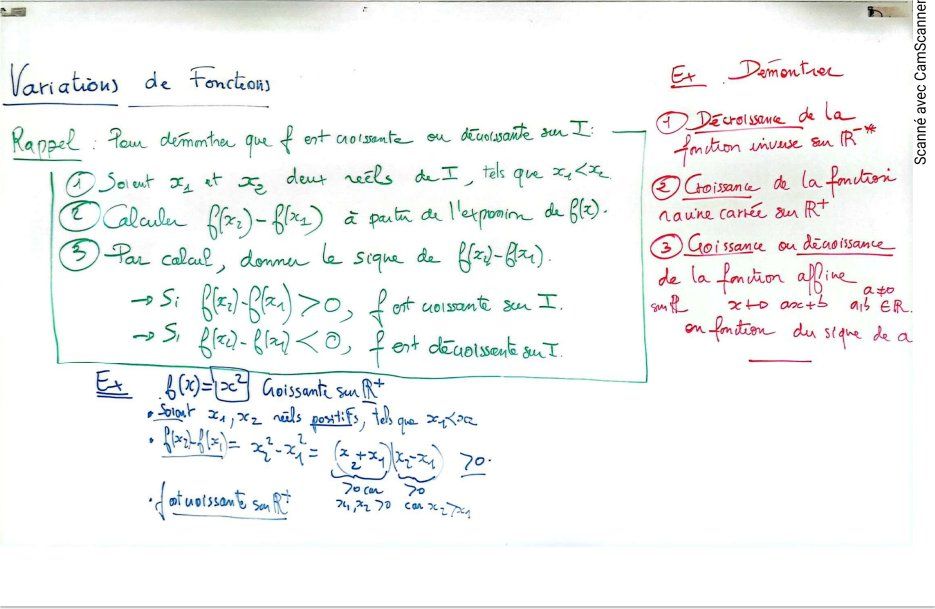 Variations de Fonctions
Rappel : Pour démontrer que f est croissante ou décroissante sur I:
① Soient x₁ et x₂ deux réels de I, tels que x₁<x₂
② Calculer f(x₂)-f(x₁) à partir de l'expression de f(x).
③ Par calcul, donner le signe de f(x₂)-f(x₁).
→ Si f(x₂)-f(x₁)>0, f est croissante sur I.
→ Si f(x₂)-f(x₁)<0, f est décroissante sur I.
Ex f(x)=x² Croissante sur ℝ⁺
• Soient x₁, x₂ réels positifs, tels que x₁<x₂
• f(x₂)-f(x₁)= x₂²-x₁²= (x₂+x₁)(x₂-x₁) >0.
>0 car >0
x₁,x₂ >0 car x₂>x₁
• f est croissante sur ℝ⁺
Ex Démontrer
① Décroissance de la
fonction inverse sur ℝ⁻*
② Croissance de la fonction
racine carrée sur ℝ⁺
③ Croissance ou décroissance
de la fonction affine
a≠0
sur ℝ x↦ ax+b a,b ∈ℝ.
en fonction du signe de a
Scanné avec CamScanner